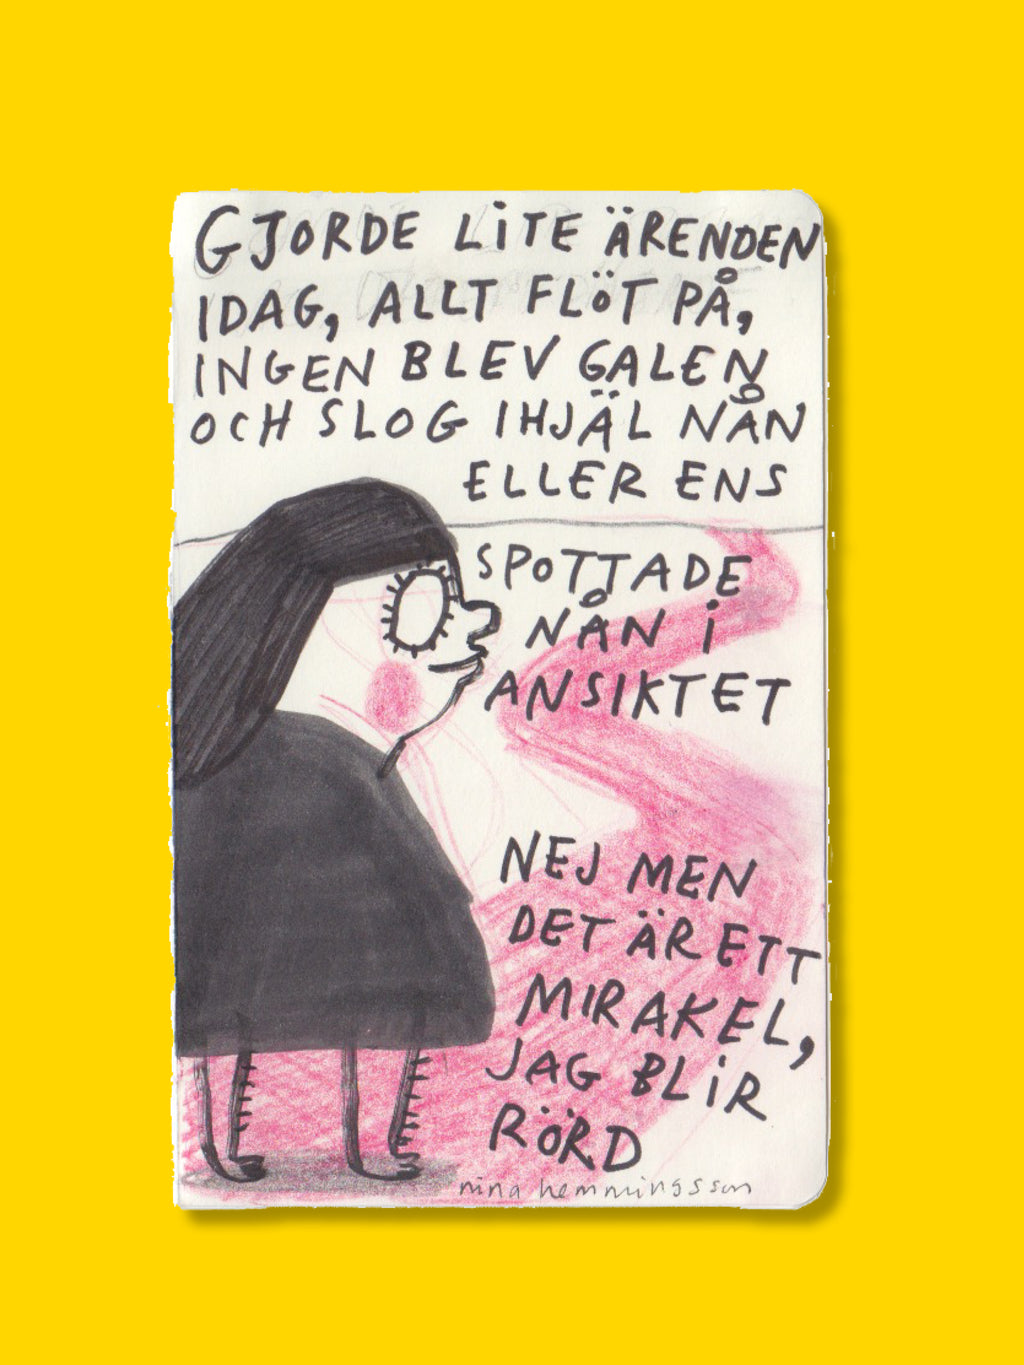 GJORDE LITE ÄRENDEN
IDAG, ALLT FLÖT PÅ,
INGEN BLEV GALEN
OCH SLOG IHJÄL NÅN
ELLER ENS
SPOTTADE
NÅN I
ANSIKTET
NEJ MEN
DET ÄR ETT
MIRAKEL,
JAG BLIR
RÖRD
nina hemmingsson